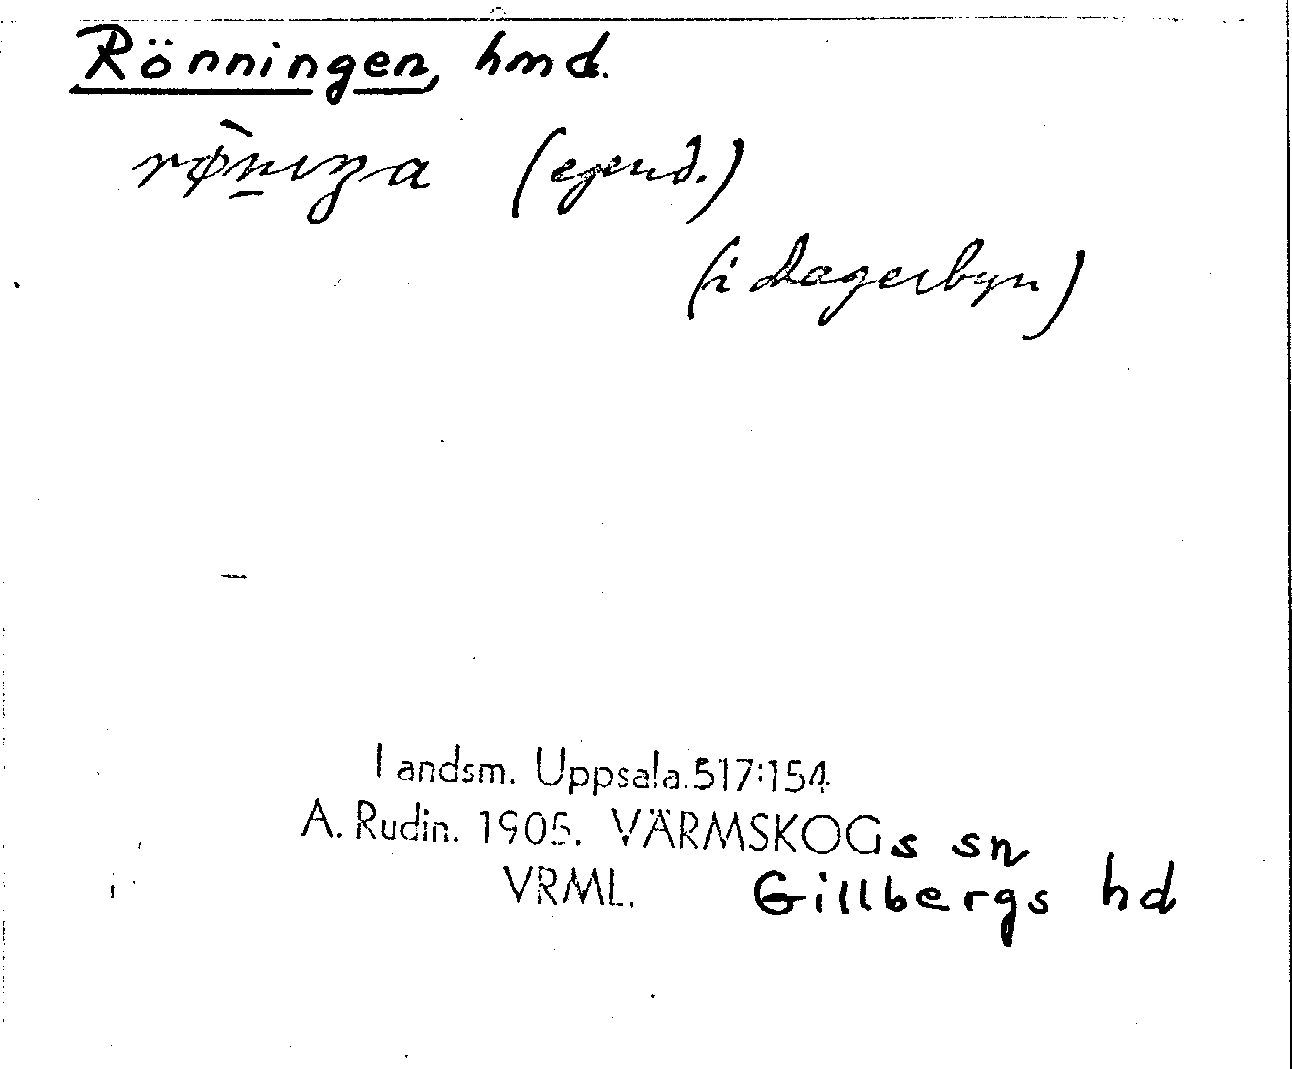 Rönningen, hmd.
rø̀n̠ıŋa (egend.)
(i Dagerbyn)
Landsm. Uppsala.517:154
A. Rudin. 1905. VÄRMSKOGs sn
VRML. Gillbergs hd